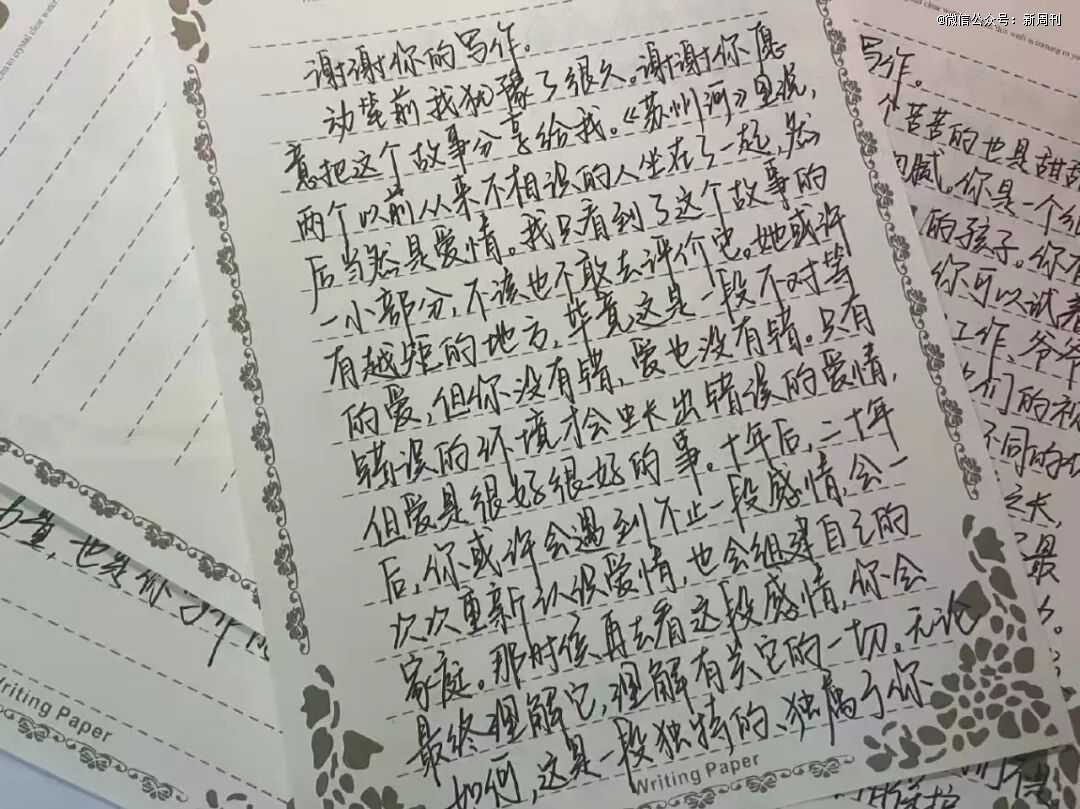 @微信公众号：新周刊
谢谢你的写作。
动笔前我犹豫了很久。谢谢你愿
意把这个故事分享给我。《苏州河》里说，
两个以前从来不相识的人坐在了一起，然
后当然是爱情。我只看到了这个故事的
一小部分，不该也不敢去评价它。她或许
有越矩的地方，毕竟这是一段不对等
的爱，但你没有错，爱也没有错。只有
错误的环境才会生长出错误的爱情，
但爱是很好很好的事。十年后，二十年
后，你或许会遇到不止一段感情，会一
次次重新认识爱情，也会组建自己的
家庭。那时候再去看这段感情，你会
最终理解它，理解有关它的一切。无论
如何，这是一段独特的、独属于你
Writing Paper
写作。
个苦苦的也是甜甜
细腻。你是一个细
的孩子。你有
你可以试着
工作、爷爷
们的视
不同的
之长，
最
，也
Writing Paper
to crystal clear water
this wish is coming to you